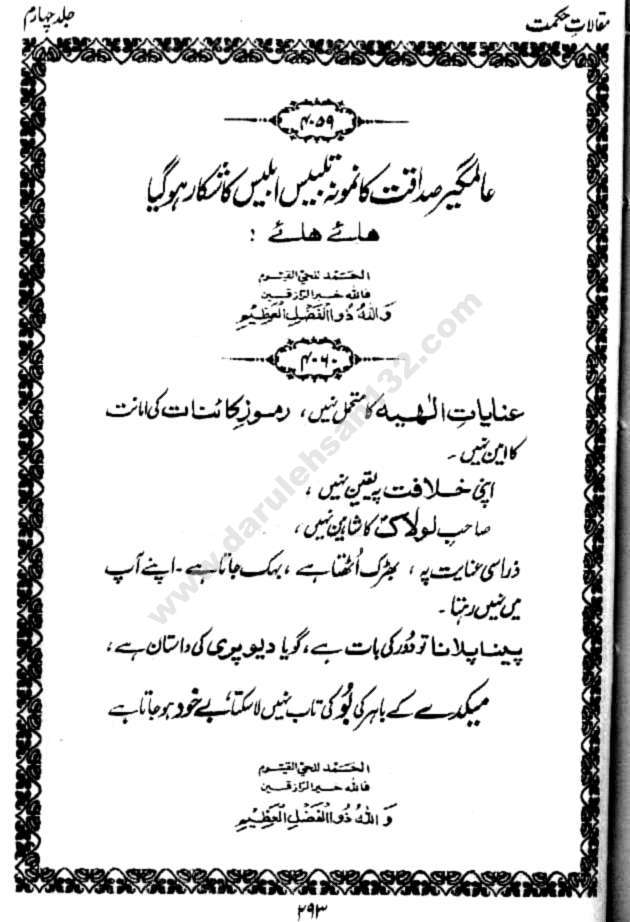 مقالاتِ حکمت
جلد چہارم
۴۰۵۹
عالمگیر صداقت کا نمونہ تلبیسِ ابلیس کا شکار ہو گیا
ھائے ھائے :
الحَمد للحیّ القیّوم
فاللہ خیر الرّازقین
وَاللہُ ذُو الفَضلِ العَظِیم
۴۰۶۰
عنایاتِ الٰہیہ کا متحمل نہیں ، رموزِ کائنات کی امانت
کا امین نہیں ۔
اپنی خلافت پہ یقین نہیں ،
صاحبِ لولاکؐ کا شاہین نہیں ،
ذرا سی عنایت پہ ، بھڑک اُٹھتا ہے ، بہک جاتا ہے ۔ اپنے آپ
میں نہیں رہتا ۔
پینا پلانا تو دُور کی بات ہے ، گویا دیو پری کی داستان ہے ،
میکدے کے باہر کی بُو کی تاب نہیں لا سکتا ، بے خود ہو جاتا ہے
الحَمد للحیّ القیّوم
فاللہ خیر الرّازقین
وَاللہُ ذُو الفَضلِ العَظِیم
۲۹۳
www.darulehsan132.com